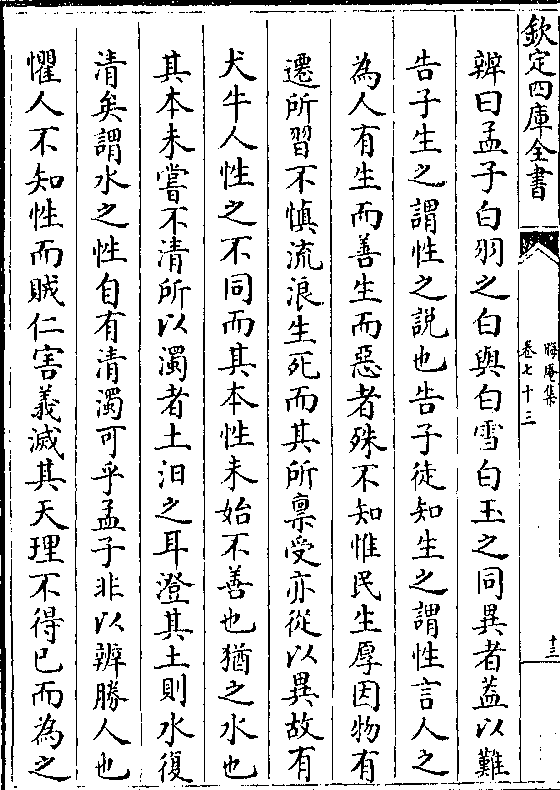 欽定四庫全書
晦庵集
卷七十三
十三
辨曰孟子白羽之白與白雪白玉之同異者蓋以難
告子生之謂性之説也告子徒知生之謂性言人之
為人有生而善生而惡者殊不知惟民生厚因物有
遷所習不慎流浪生死而其所禀受亦從以異故有
犬牛人性之不同而其本性未始不善也猶之水也
其本未嘗不清所以濁者土汩之耳澄其土則水復
清矣謂水之性自有清濁可乎孟子非以辨勝人也
懼人不知性而賊仁害義滅其天理不得已而為之